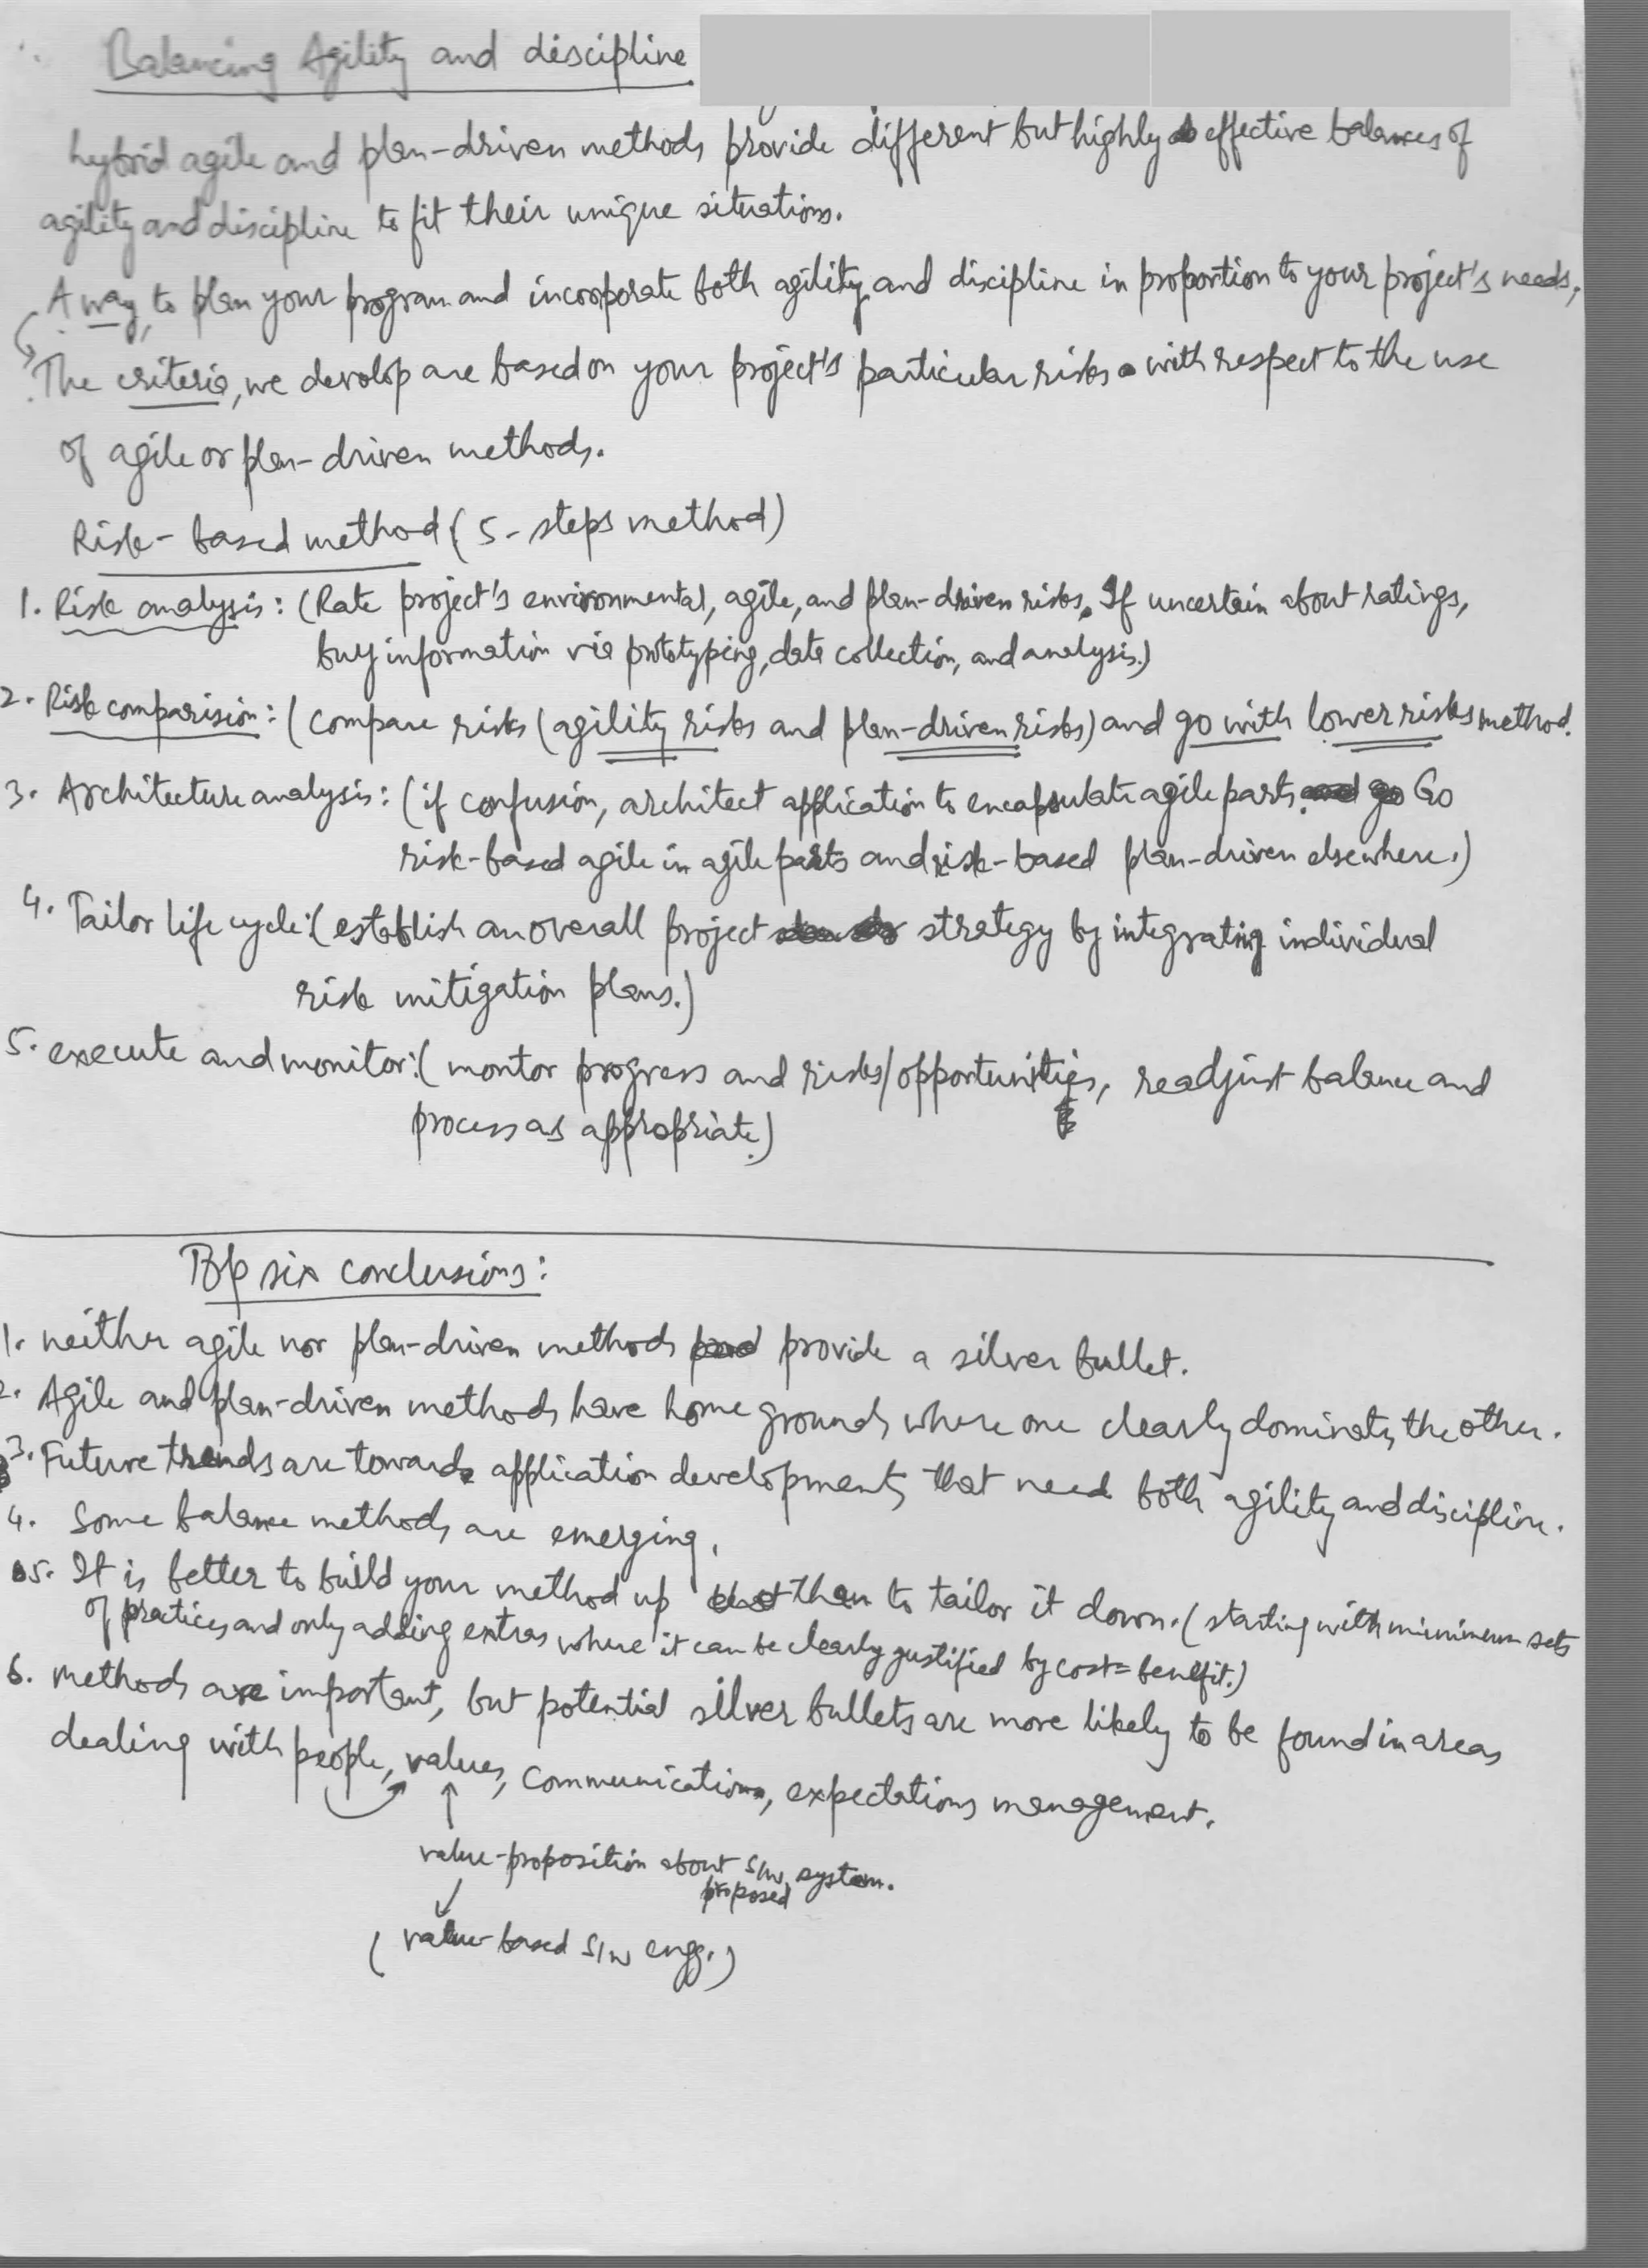 Balancing Agility and discipline
hybrid agile and plan-driven methods provide different but highly effective balances of
agility and discipline to fit their unique situations.
A way, to plan your program and incorporate both agility and discipline in proportion to your project's needs,
The criteria, we devolop are based on your project's particular risks with respect to the use
of agile or plan-driven methods.
Risk-based method (5-steps method)
1. Risk analysis: (Rate project's environmental, agile, and plan-driven risks. If uncertain about ratings,
buy information via prototyping, data collection, and analysis.)
2. Risk comparision: (compare risks (agility risks and plan-driven risks) and go with lower risks method.
3. Architecture analysis: (if confusion, architect application to encapsulate agile parts. Go
risk-based agile in agile parts and risk-based plan-driven elsewhere.)
4. Tailor life cycle: (establish an overall project strategy by integrating individual
risk mitigation plans.)
5. execute and monitor: (montor progress and risks/opportunities, readjust balance and
process as appropriate.)
Top six conclusions:
1. neither agile nor plan-driven methods provide a silver bullet.
2. Agile and plan-driven methods have home grounds where one clearly dominates the other.
3. Future trends are towards application developments that need both agility and discipline.
4. Some balance methods are emerging.
5. It is better to build your method up than to tailor it down. (starting with minimum sets
of practices and only adding extras where it can be clearly justified by cost=benefit.)
6. methods are important, but potential silver bullets are more likely to be found in areas
dealing with people, values, communications, expectations management.
value-proposition about S/w system.
proposed
(value-based S/w engg.)